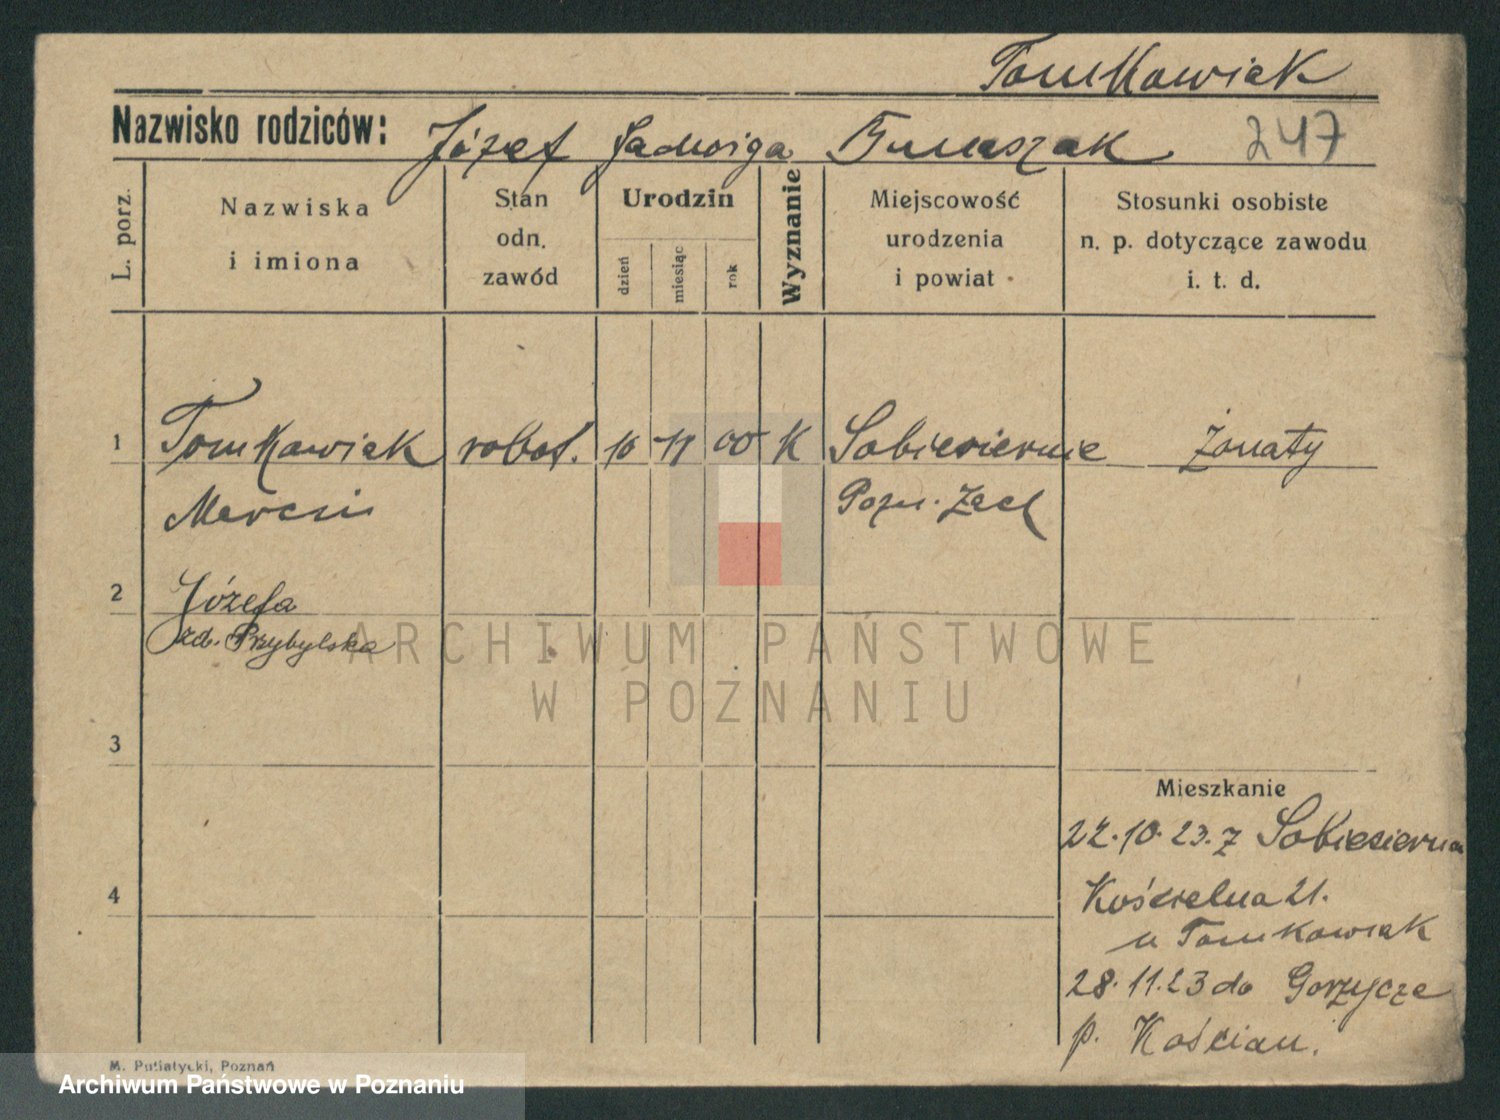 Tomkowiak
Nazwisko rodziców: Józef Jadwiga 247
L. porz.
Nazwiska
i imiona
Stan
odn.
zawód
Urodzin
dzień
miesiąc
rok
Wyznanie
Miejscowość
urodzenia
i powiat
Stosunki osobiste
n. p. dotyczące zawodu
i. t. d.
1 Tomkowiak robot. 10 11 00 K Sobiesiernie Żonaty
Marcin Pozn. Zach
2 Józefa
zd. Przybylska
3
Mieszkanie
22.10.23. z Sobiesierna
4 Kościelna 21.
u Tomkowiak
28.11.23 do Gorzycze
p. Kościan.
M. Putiatycki, Poznań
ARCHIWUM PAŃSTWOWE
W POZNANIU
Archiwum Państwowe w Poznaniu